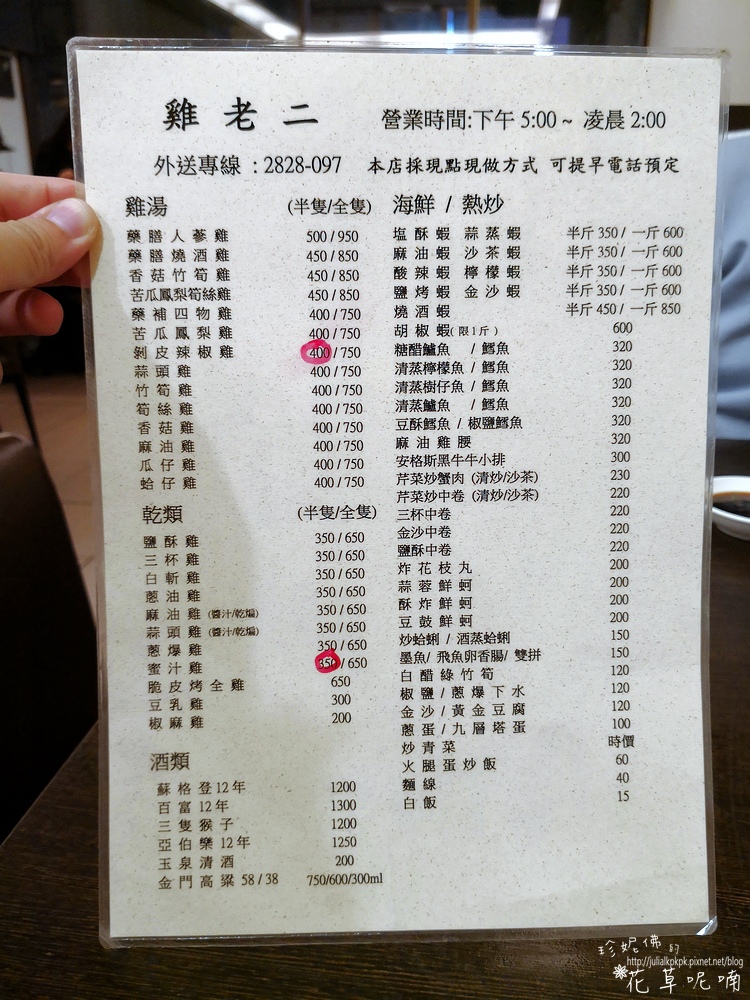 雞老二 營業時間:下午 5:00 ~ 凌晨 2:00
外送專線 : 2828-097 本店採現點現做方式 可提早電話預定
雞湯 (半隻/全隻)
藥膳人蔘雞 500 / 950
藥膳燒酒雞 450 / 850
香菇竹筍雞 450 / 850
苦瓜鳳梨筍絲雞 450 / 850
藥補四物雞 400 / 750
苦瓜鳳梨雞 400 / 750
剝皮辣椒雞 400 / 750
蒜頭雞 400 / 750
竹筍雞 400 / 750
筍絲雞 400 / 750
香菇雞 400 / 750
麻油雞 400 / 750
瓜仔雞 400 / 750
蛤仔雞 400 / 750
乾類 (半隻/全隻)
鹽酥雞 350 / 650
三杯雞 350 / 650
白斬雞 350 / 650
蔥油雞 350 / 650
麻油雞 (醬汁/乾煸) 350 / 650
蒜頭雞 (醬汁/乾煸) 350 / 650
蔥爆雞 350 / 650
蜜汁雞 350 / 650
脆皮烤全雞 650
豆乳雞 300
椒麻雞 200
酒類
蘇格登12年 1200
百富12年 1300
三隻猴子 1200
亞伯樂12年 1250
玉泉清酒 200
金門高粱 58 / 38 750/600/300ml
海鮮 / 熱炒
塩酥蝦 蒜蒸蝦 半斤 350 / 一斤 600
麻油蝦 沙茶蝦 半斤 350 / 一斤 600
酸辣蝦 檸檬蝦 半斤 350 / 一斤 600
鹽烤蝦 金沙蝦 半斤 350 / 一斤 600
燒酒蝦 半斤 450 / 一斤 850
胡椒蝦(限1斤) 600
糖醋鱸魚 / 鱈魚 320
清蒸檸檬魚 / 鱈魚 320
清蒸樹仔魚 / 鱈魚 320
清蒸鱸魚 / 鱈魚 320
豆酥鱈魚 / 椒鹽鱈魚 320
麻油雞腰 320
安格斯黑牛牛小排 300
芹菜炒蟹肉 (清炒/沙茶) 230
芹菜炒中卷 (清炒/沙茶) 220
三杯中卷 220
金沙中卷 220
鹽酥中卷 220
炸花枝丸 200
蒜蓉鮮蚵 200
酥炸鮮蚵 200
豆鼓鮮蚵 200
炒蛤蜊 / 酒蒸蛤蜊 150
墨魚/ 飛魚卵香腸/ 雙拼 150
白醋綠竹筍 120
椒鹽 / 蔥爆下水 120
金沙 / 黃金豆腐 120
蔥蛋 / 九層塔蛋 100
炒青菜 時價
火腿蛋炒飯 60
麵線 40
白飯 15
珍妮佛的
http://julialkpkpk.pixnet.net/blog
花草呢喃